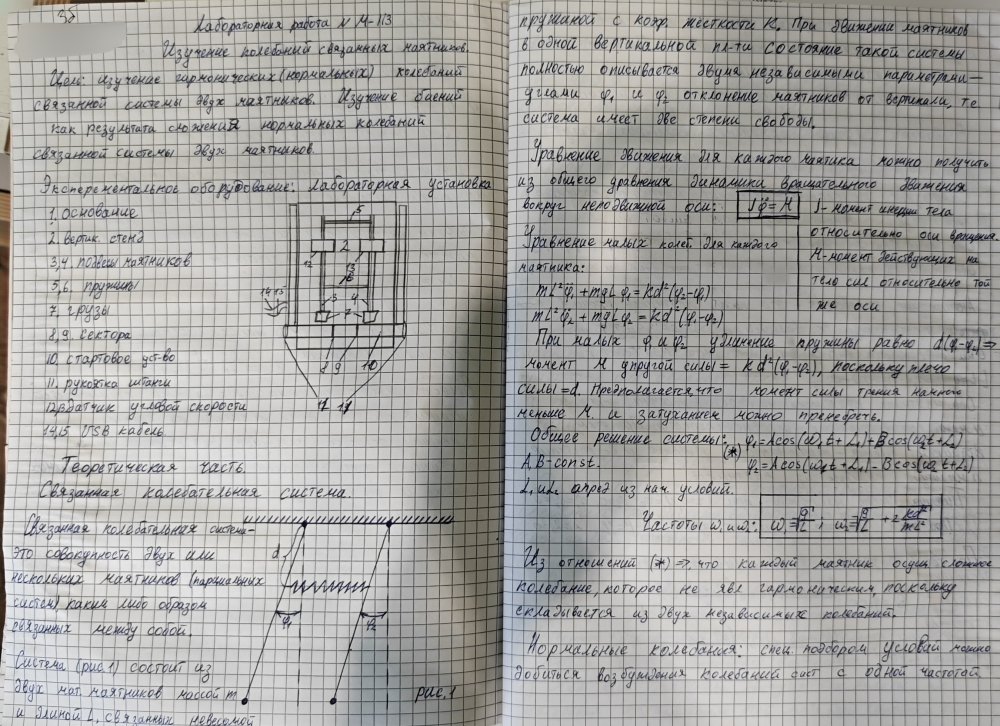 35
Лабораторная работа N M-113
Изучение колебаний связанных маятников.
Цель: изучение гармонических (нормальных) колебаний
связанной системы двух маятников. Изучение биений
как результата сложения нормальных колебаний
связанной системы двух маятников.
Эксперементальное оборудование: лабораторная установка
1. основание
2. вертик. стенд
3,4. подвесы маятников
5,6. пружины
7. грузы
8,9. сектора
10. стартовое уст-во
11. рукоятка штанги
12,13 датчик угловой скорости
14,15 USB кабель
5
2
12
13
6
14 15
3
4
7
8 9
10
11
Теоретическая часть
Связанная колебательная система.
Связанная колебательная система-
это совокупность двух или
нескольких маятников (парциальных
систем) каким либо образом
связанных между собой.
Система (рис.1) состоит из
двух мат. маятников массой m
и длиной L, связанных невесомой
d
φ₁
φ₂
рис.1
пружиной с коэф. жесткости K. При движении маятников
в одной вертикальной пл-ти состояние такой системы
полностью описывается двумя независимыми параметрами—
углами φ₁ и φ₂ отклонение маятников от вертикали, т.е
система имеет две степени свободы.
Уравнение движения для каждого маятика можно получить
из общего уравнения динамики вращательного движения
вокруг неподвижной оси: Jφ̈ = M
J- момент инерции тела
относительно оси вращения.
M-момент действующих на
тело сил относительно той
же оси
Уравнение малых колеб. для каждого
маятника:
mL²φ̈₁ + mgLφ₁ = kd²(φ₂-φ₁)
mL²φ̈₂ + mgLφ₂ = kd²(φ₁-φ₂)
При малых φ₁ и φ₂ удлинение пружины равно d(φ₁-φ₂) =>
момент M упругой силы = kd²(φ₁-φ₂), поскольку плечо
силы = d. Предполагается, что момент силы трения намного
меньше M и затуханием можно пренебречь.
Общее решение системы: φ₁ = Acos(ω₁t + L₁) + Bcos(ω₂t + L₂)
(*)
A, B-const. φ₂ = Acos(ω₁t + L₁) - Bcos(ω₂t + L₂)
L₁ и L₂ опред из нач. условий.
Частоты ω₁ и ω₂: ω₁ = √g/L ; ω₂ = √g/L + 2 kd²/mL²
Из отношений (*) => что каждый маятник осущ. сложное
колебание, которое не явл гармоническим, поскольку
складывается из двух независимых колебаний.
Нормальные колебания: спец. подбором условий можно
добиться возбуждения колебаний сист с одной частотой.